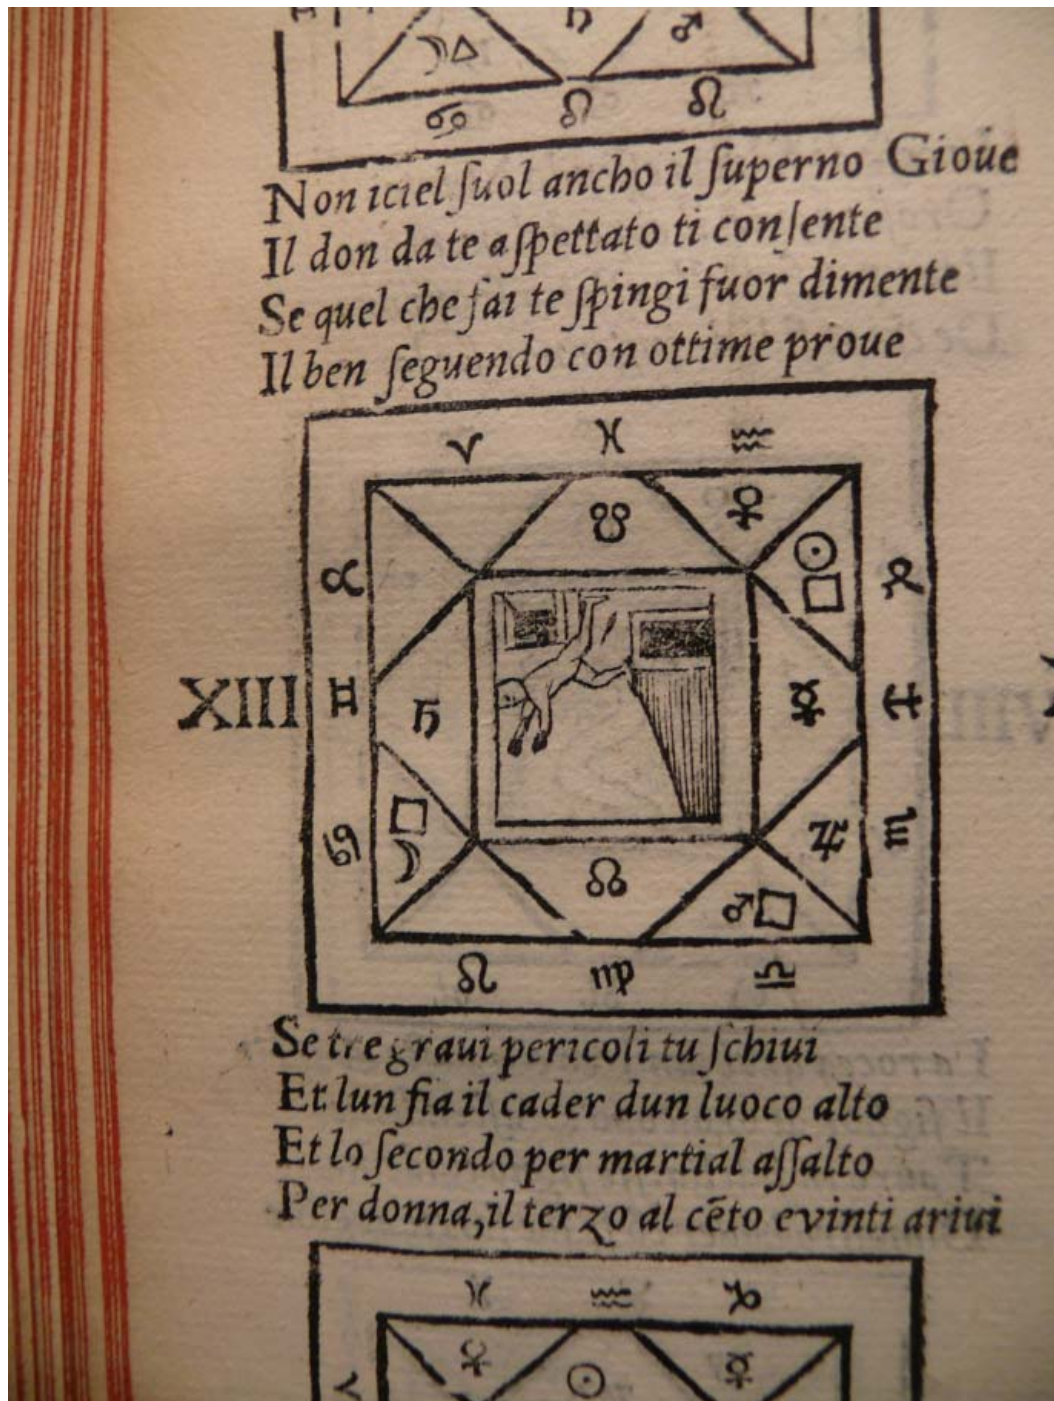 Non iciel ſuol ancho il ſuperno Gioue
Il don da te aſpettato ti conſente
Se quel che fai te ſpingi fuor dimente
Il ben ſeguendo con ottime proue
♈ ♓ ♒
☋ ♀
☉ □
♉ ♑
XIII ♊ ♄ ☿ ♐
□
♋ ☽ ♃ ♏
☊ ♂ □
♌ ♍ ♎
Se tre graui pericoli tu ſchiui
Et lun fia il cader dun luoco alto
Et lo ſecondo per martial aſſalto
Per donna, il terzo al cẽto e vinti ariui